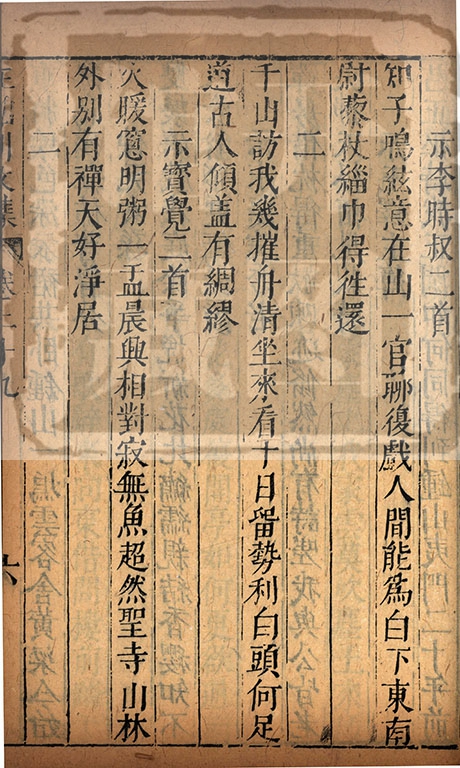 示李時叔二首
知子鳴絃意在山一官聊復戲人間能爲白下東南
尉藜杖緇巾得徃還
二
千山訪我幾摧舟清坐來看十日留勢利白頭何足
道古人傾盖有綢繆
示寳覺二首
火暖窻明粥一盂晨興相對寂無魚超然聖寺山林
外别有禪天好淨居
二